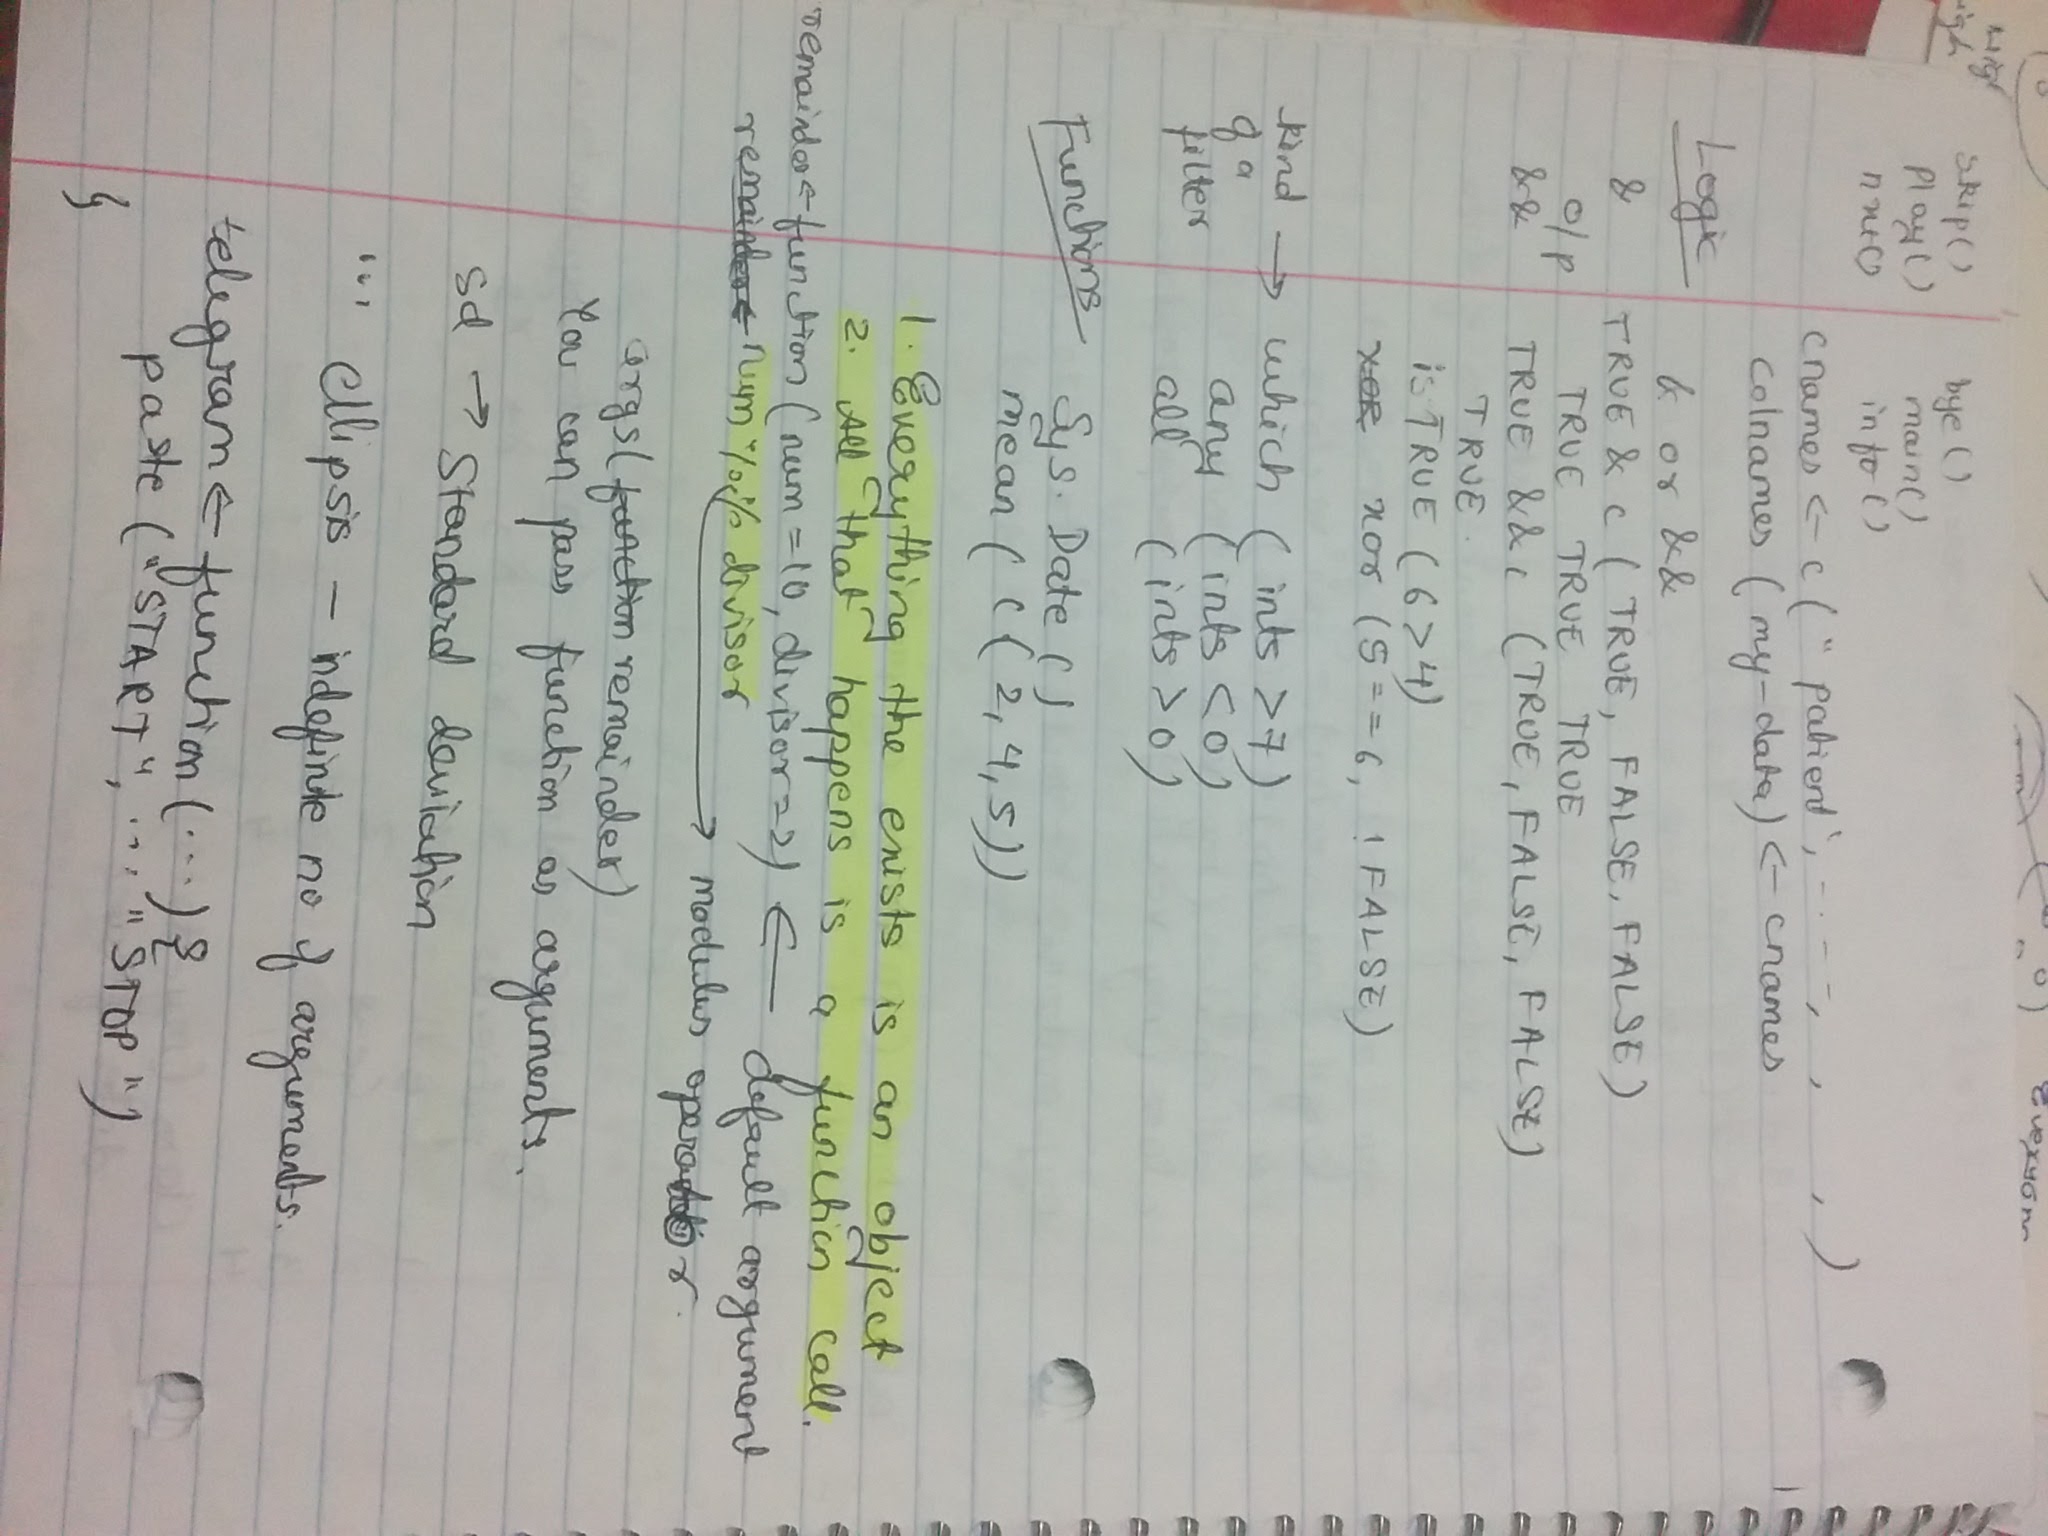 skip() bye()
play() main()
nxt() info()
cnames <- c("patient", - - -, , , )
colnames (my-data) <- cnames
Logic
& or &&
& TRUE & c (TRUE, FALSE, FALSE)
o/p TRUE TRUE TRUE
&& TRUE && c (TRUE, FALSE, FALSE)
TRUE.
isTRUE (6>4)
xor (5==6, !FALSE)
kind → which (ints >7)
of a any (ints <0)
filter all (ints >0)
Functions Sys.Date()
mean (c(2,4,5))
1. Everything the exists is an object
2. All that happens is a function call.
remainder <- function (num=10, divisor=2) ← default argument
num %% divisor → modulus operator.
args(remainder)
You can pass function as arguments.
sd → Standard deviation
... Ellipsis - indefinite no of arguments.
telegram <- function(...){
paste ("START", ..., "STOP")
}